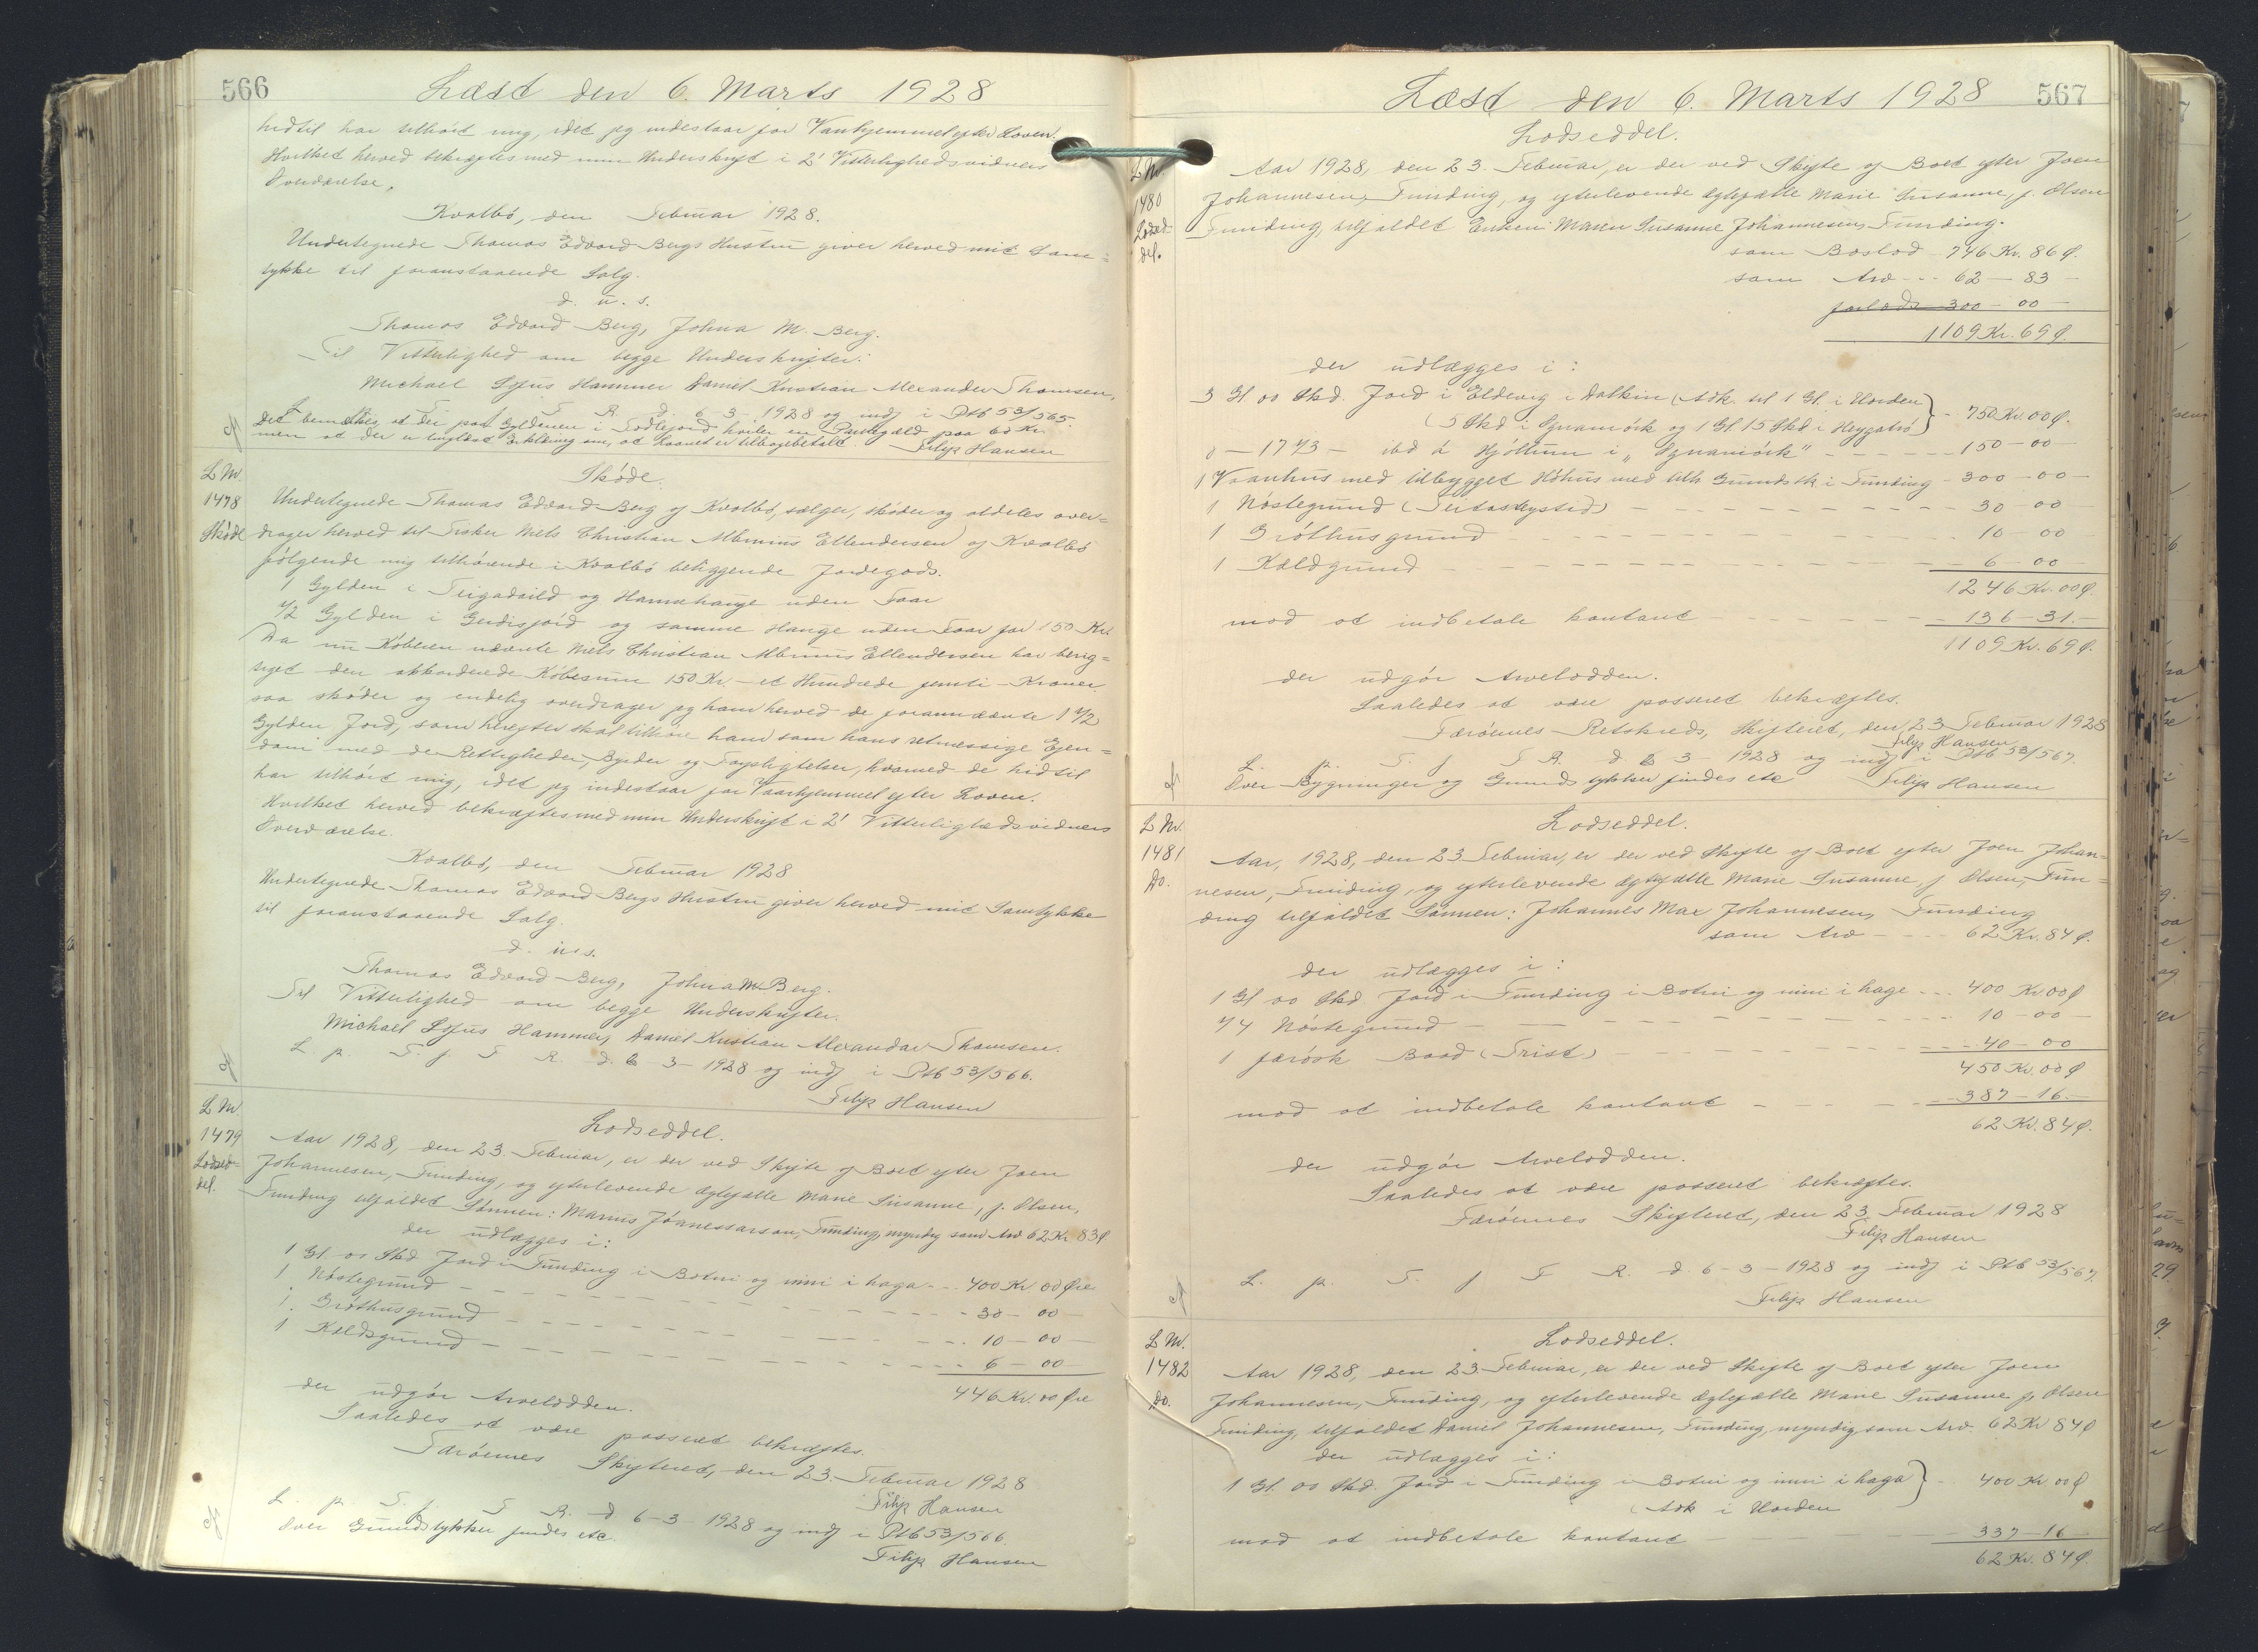 566
Læst den 6. Marts 1928
hidtil har tilhört mig, idet jeg indestaar for Vanhjemmel efter Loven.
Hvilket herved bekræftes med min Underskrift i 2' Vitterlighedsvidners
Overværelse.
Kvalbö, den Februar 1928.
Undertegnede Thomas Edvard Bergs Hustru giver herved mit Sam=
tykke til foranstaaende Salg.
d. u. s.
Thomas Edvard Berg, Johna M. Berg.
Til Vitterlighed om begge Underskrifter:
Michael Sofus Hammer Daniel Kristian Alexander Thomsen,
L. p. T. f. F. R. d. 6-3-1928 og indf i Ptb 53/565.
Det bemærkes, at der paa Gyldenen i hviler en Pantegæld paa 60 Kr.
men at der er tinglæst Erklæring om, at Laanet er tilbagebetalt. Filip Hansen
L Nr.
1478
Sköde
Sköde.
Undertegnede Thomas Edvard Berg af Kvalbö, sælger, sköder og aldeles over=
drager herved til Fisker Niels Christian Albinus Ellendersen af Kvalbö
fölgende mig tilhörende i Kvalbö beliggende Jordegods.
1 Gylden i og Hamrahauge uden Faar
1/2 Gylden i Gerdisjörd og samme Hauge uden Faar for 150 Kr.
Da nu Köberen nævnte Niels Christian Albinus Ellendersen har berig=
tiget den akkorderede Köbesum 150 Kr. - et Hundrede femti - Kroner
saa sköder og endelig overdrager jeg ham herved de forannævnte 1 1/2
Gylden Jord, som herefter skal tilhöre ham som hans retmessige Ejen=
dom med de Rettigheder, Byrder og Forpligtelser, hvormed de hidtil
har tilhört mig, idet jeg indestaar for Vanhjemmel efter Loven.
Hvilket herved bekræftes med min Underskrift i 2' Vitterlighedsvidners
Overværelse.
Kvalbö, den Februar 1928
Undertegnede Thomas Edvard Bergs Hustru giver herved mit Samtykke
til foranstaaende Salg.
d. u. s.
Thomas Edvard Berg, Johna M. Berg.
Til Vitterlighed om begge Underskrifter.
Michael Sofus Hammer, Daniel Kristian Alexandar Thomsen.
L. p. T. f. F. R. d. 6-3-1928 og indf i Ptb 53/566.
Filip Hansen
L Nr.
1479
Lodsed=
del.
Lodseddel.
Aar 1928, den 23. Februar, er der ved Skifte af Boet efter Joen
Johannesen, Funding, og efterlevende Ægtefælle Marie Susanne, f. Olsen,
Funding tilfaldet Sönnen: Marius Jóanessarson, Funding, myndig som Arv 62 Kr. 83 Ø
der udlægges i:
1 Gl. 00 Skd Jord i Funding i Botni og inni i haga - - - 400 Kr 00 Øre
1 Nöstegrund - - - 30 - 00 -
1. Gróthusgrund - - - 10 - 00 -
1 Kældsgrund - - - 6 - 00 -
446 Kr. 00 Øre
der udgör Arvelodden.
Saaledes at være passeret bekræftes.
Færöernes Skifteret, den 23. Februar 1928
Filip Hansen
L. p. T. f. F. R. d 6-3-1928 og indf i Ptb 53/566.
Over Grundstykker findes etc.
Filip Hansen
567
Læst den 6. Marts 1928
L Nr.
1480
Lodsed-
del.
Lodseddel.
Aar 1928, den 23. Februar, er der ved Skifte af Boet efter Joen
Johannesen, Funding, og efterlevende Ægtefælle Marie Susanne, f. Olsen
Funding tilfaldet Enken: Maren Susanne Johannesen, Funding.
som Boslod - 746 Kr. 86 Ø.
som Arv - - - 62 - 83 -
forlods 300 - 00 -
1109 Kr. 69 Ø.
der udlægges i:
3 Gl. 00 Skd. Jord i Eldevig i Dalkin (Adk. til 1 Gl. i Horden
(5 Skd i Ognamörk og 1 Gl. 15 Skd i } - 750 Kr. 00 Ø.
0 - 17 1/3 - ibd á Hjöllum i "Ognamörk" - - - 150 - 00 -
1 Vaanhus med tilbygget Höhus med tilh Grundstk. i Funding - 300 - 00 -
1 Nöstegrund - - - 30 - 00 -
1 Gróthusgrund - - - 10 - 00
1 Kældgrund - - - 6 - 00 -
1246 Kr. 00 Ø.
mod at indbetale kontant - - - 136 - 31. -
1109 Kr. 69 Ø.
der udgör Arvelodden.
Saaledes at være passeret bekræftes.
Færöernes Retskreds, Skifteret, den 23 Februar 1928
Filip Hansen
L. p. T. f F R. d. 6 3 - 1928 og indf i Ptb 53/567.
Over Bygninger og Grundstykker findes etc Filip Hansen
L Nr.
1481
Do.
Lodseddel.
Aar, 1928, den 23. Februar, er der ved Skifte af Boet efter Joen Johan=
nesen, Funding, og efterlevende Ægtefælle Marie Susanne f. Olsen, Fun=
ding tilfaldet Sönnen: Johannes Max Johannesen, Funding
som Arv - - - 62 Kr. 84 Ø.
der udlægges i:
1 Gl 00 Skd. Jord i Funding i Botni og inni i hage - - - 400 Kr 00 Ø
1/4 Nöstegrund - - - 10 - 00 -
1 færösk Baad (Trist) - - - 40 - 00
450 Kr. 00 Ø
mod at indbetale kontant - - - 387 - 16. -
62 Kr. 84 Ø.
der udgör Arvelodden.
Saaledes at være passeret bekræftes.
Færöernes Skifteret, den 23. Februar 1928
Filip Hansen
L. p. T. f F R. d. 6-3-1928 og indf i Ptb 53/567.
Filip Hansen
L Nr.
1482
Do.
Lodseddel.
Aar 1928, den 23 Februar, er der ved Skifte af Boet efter Joen
Johannesen, Funding, og efterlevende Ægtefælle Marie Susanne f. Olsen
Funding, tilfaldet Daniel Johannesen, Funding, myndig som Arv. 62 Kr 84 Ø
der udlægges i:
1 Gl. 00 Skd. Jord i Funding i Botni og inni i haga } - 400 Kr 00 Ø
(Adk i Horden
mod at indbetale kontant - - - 337 - 16
62 Kr. 84 Ø.